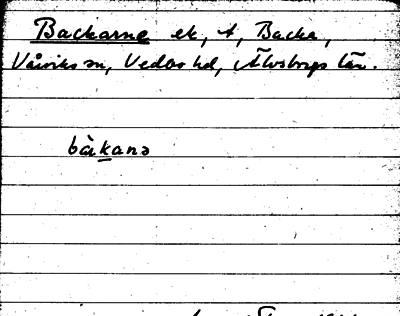 Backarne ek, t, Backa,
Västviks sn, Vedbo hd, Älvsborgs län.
bàkanə